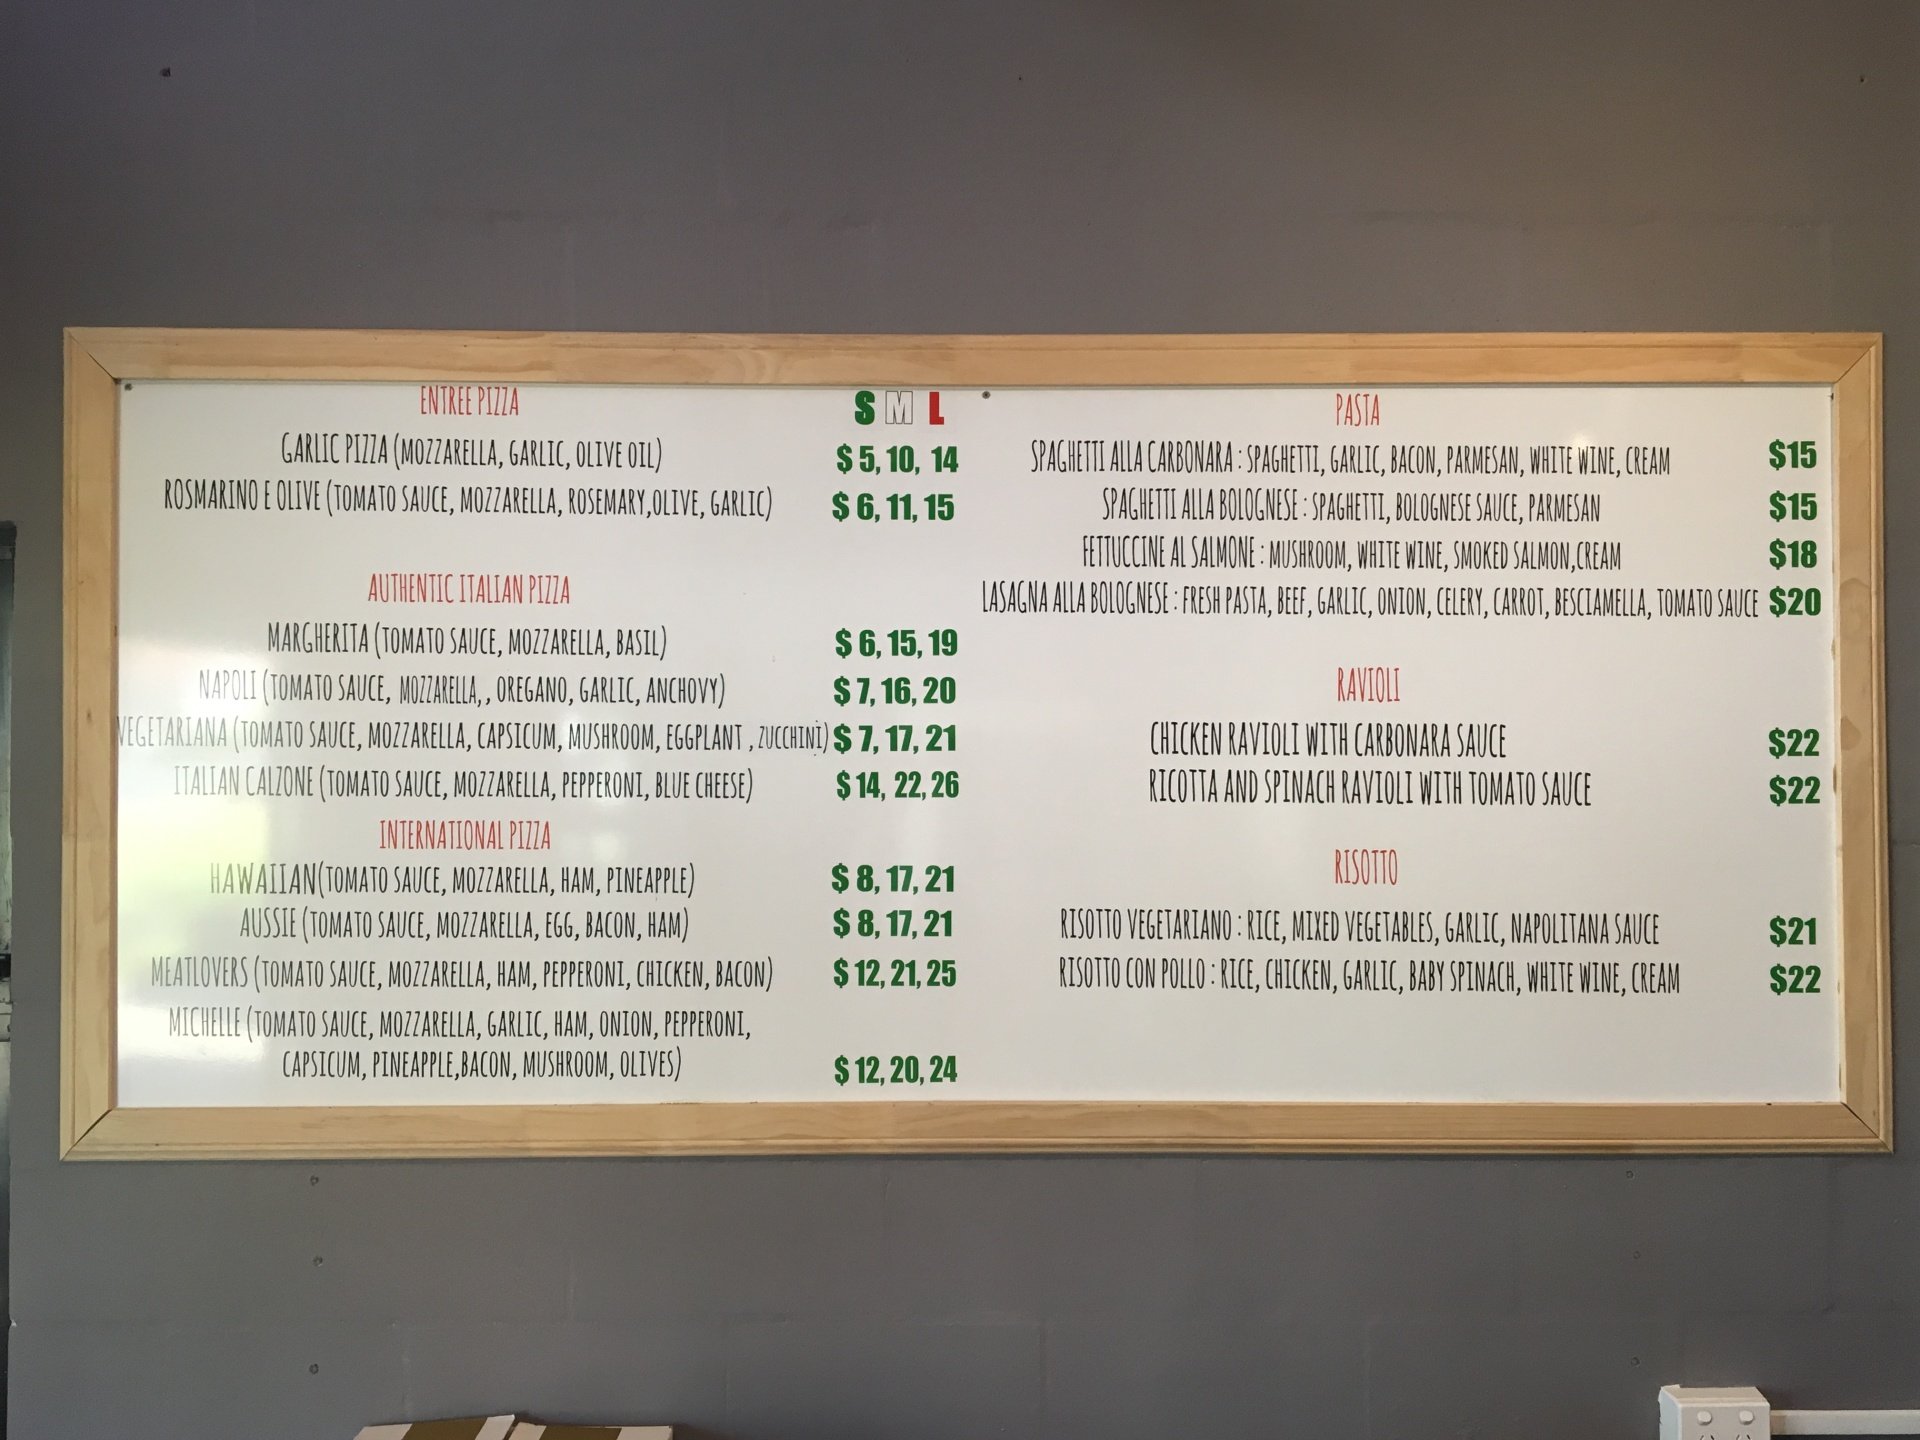 ENTREE PIZZA
S M L
GARLIC PIZZA (MOZZARELLA, GARLIC, OLIVE OIL) $ 5, 10, 14
ROSMARINO E OLIVE (TOMATO SAUCE, MOZZARELLA, ROSEMARY,OLIVE, GARLIC) $ 6, 11, 15
AUTHENTIC ITALIAN PIZZA
MARGHERITA (TOMATO SAUCE, MOZZARELLA, BASIL) $ 6, 15, 19
NAPOLI (TOMATO SAUCE, MOZZARELLA, , OREGANO, GARLIC, ANCHOVY) $ 7, 16, 20
VEGETARIANA (TOMATO SAUCE, MOZZARELLA, CAPSICUM, MUSHROOM, EGGPLANT , ZUCCHINI) $ 7, 17, 21
ITALIAN CALZONE (TOMATO SAUCE, MOZZARELLA, PEPPERONI, BLUE CHEESE) $ 14, 22, 26
INTERNATIONAL PIZZA
HAWAIIAN(TOMATO SAUCE, MOZZARELLA, HAM, PINEAPPLE) $ 8, 17, 21
AUSSIE (TOMATO SAUCE, MOZZARELLA, EGG, BACON, HAM) $ 8, 17, 21
MEATLOVERS (TOMATO SAUCE, MOZZARELLA, HAM, PEPPERONI, CHICKEN, BACON) $ 12, 21, 25
MICHELLE (TOMATO SAUCE, MOZZARELLA, GARLIC, HAM, ONION, PEPPERONI,
CAPSICUM, PINEAPPLE,BACON, MUSHROOM, OLIVES) $ 12, 20, 24
PASTA
SPAGHETTI ALLA CARBONARA : SPAGHETTI, GARLIC, BACON, PARMESAN, WHITE WINE, CREAM $15
SPAGHETTI ALLA BOLOGNESE : SPAGHETTI, BOLOGNESE SAUCE, PARMESAN $15
FETTUCCINE AL SALMONE : MUSHROOM, WHITE WINE, SMOKED SALMON,CREAM $18
LASAGNA ALLA BOLOGNESE : FRESH PASTA, BEEF, GARLIC, ONION, CELERY, CARROT, BESCIAMELLA, TOMATO SAUCE $20
RAVIOLI
CHICKEN RAVIOLI WITH CARBONARA SAUCE $22
RICOTTA AND SPINACH RAVIOLI WITH TOMATO SAUCE $22
RISOTTO
RISOTTO VEGETARIANO : RICE, MIXED VEGETABLES, GARLIC, NAPOLITANA SAUCE $21
RISOTTO CON POLLO : RICE, CHICKEN, GARLIC, BABY SPINACH, WHITE WINE, CREAM $22